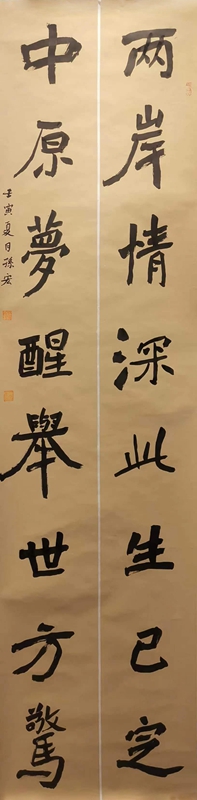 两岸情深此生已定
中原夢醒舉世方驚
壬寅夏月孫宏